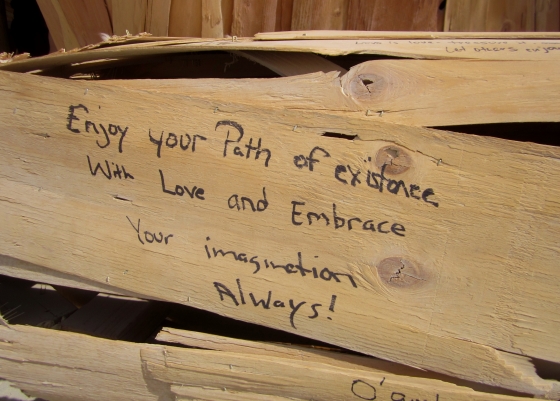 Let others enjoy
Enjoy your Path of existence
With Love and Embrace
Your imagination
Always!